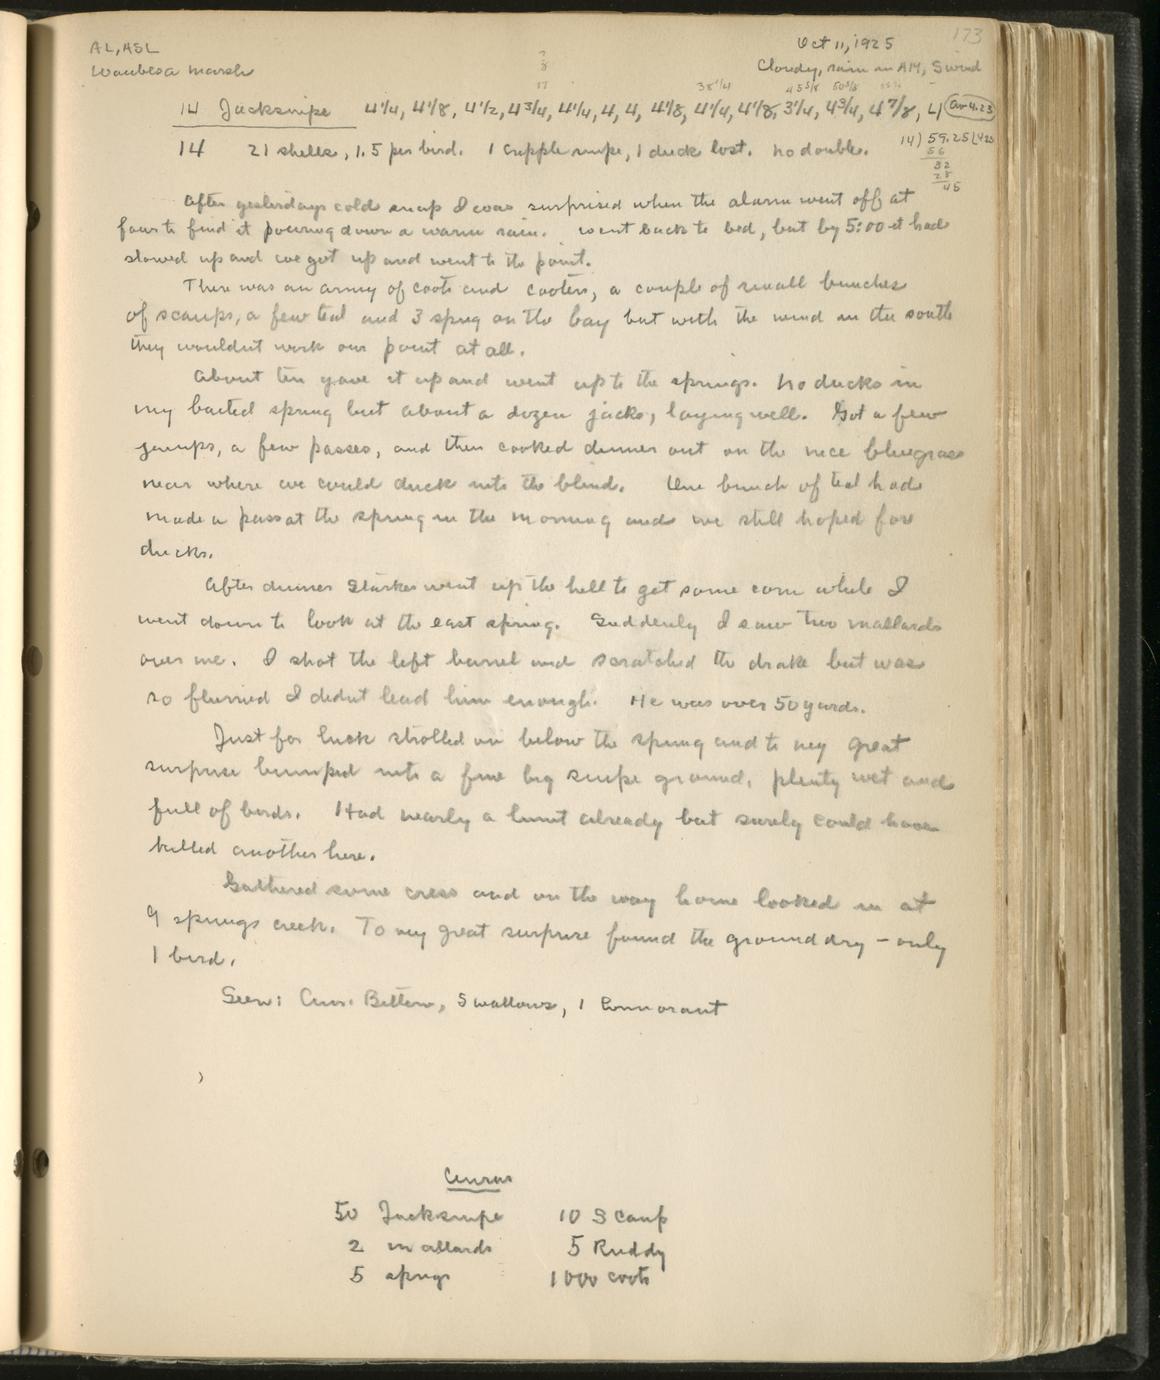 173
AL, ASL Oct 11, 1925
Waubesa Marsh Cloudy, rain in AM, S wind
38 1/4 45 5/8 50 5/8
14 Jacksnipe 4 1/4, 4 1/8, 4 1/2, 4 3/4, 4 1/4, 4, 4, 4 1/8, 4 1/4, 4 1/8, 3 1/4, 4 3/4, 4 7/8, 4 (av 4.23)
14 21 shells, 1.5 per bird. 1 cripple snipe, 1 duck lost. No double. 14) 59.25 (4.23
56
32
28
45
After yesterdays cold snap I was surprised when the alarm went off at
four to find it pouring down a warm rain. Went back to bed, but by 5:00 it had
slowed up and we got up and went to the point.
There was an army of coots and cooters, a couple of small bunches
of scaups, a few teal and 3 sprig on the bay but with the wind in the south
they wouldnt work our point at all.
About ten gave it up and went up to the springs. No ducks in
my baited spring but about a dozen jacks, laying well. Got a few
jumps, a few passes, and then cooked dinner out on the nice bluegrass
near where we could duck into the blind. One bunch of teal had
made a pass at the spring in the morning and we still hoped for
ducks.
After dinner Starker went up the hill to get some corn while I
went down to look at the east spring. Suddenly I saw two mallards
over me. I shot the left barrel and scratched the drake but was
so flurried I didnt lead him enough. He was over 50 yards.
Just for luck strolled on below the spring and to my great
surprise bumped into a fine big snipe ground, plenty wet and
full of birds. Had nearly a limit already but surely could have
killed another here.
Gathered some cress and on the way home looked in at
9 springs creek. To my great surprise found the ground dry - only
1 bird.
Seen: Amer. Bittern, Swallows, 1 Cormorant
Census
50 Jacksnipe 10 Scaup
2 mallards 5 Ruddy
5 sprigs 1000 coots